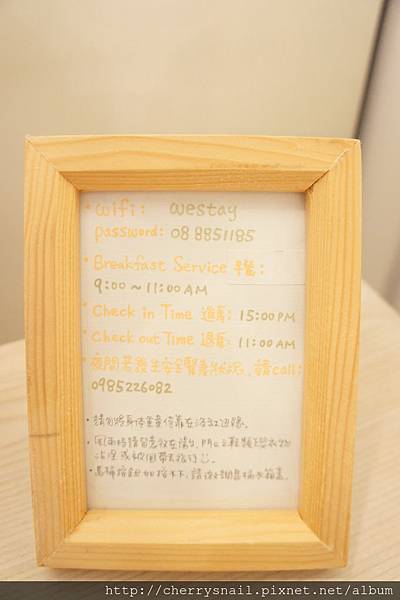 * wifi: westay
password: 08 8851185
* Breakfast Service 早餐:
9:00~11:00 AM
* Check in Time 進房: 15:00 PM
* Check out Time 退房: 11:00 AM
* 夜間若發生安全緊急狀況,請call:
0985226082
* 請勿將身體重量倚靠在浴缸邊緣。
* 風雨時請留意放在陽台,門口之鞋類
* 馬桶按鈕如按不下,請
http://cherrysnail.pixnet.net/album